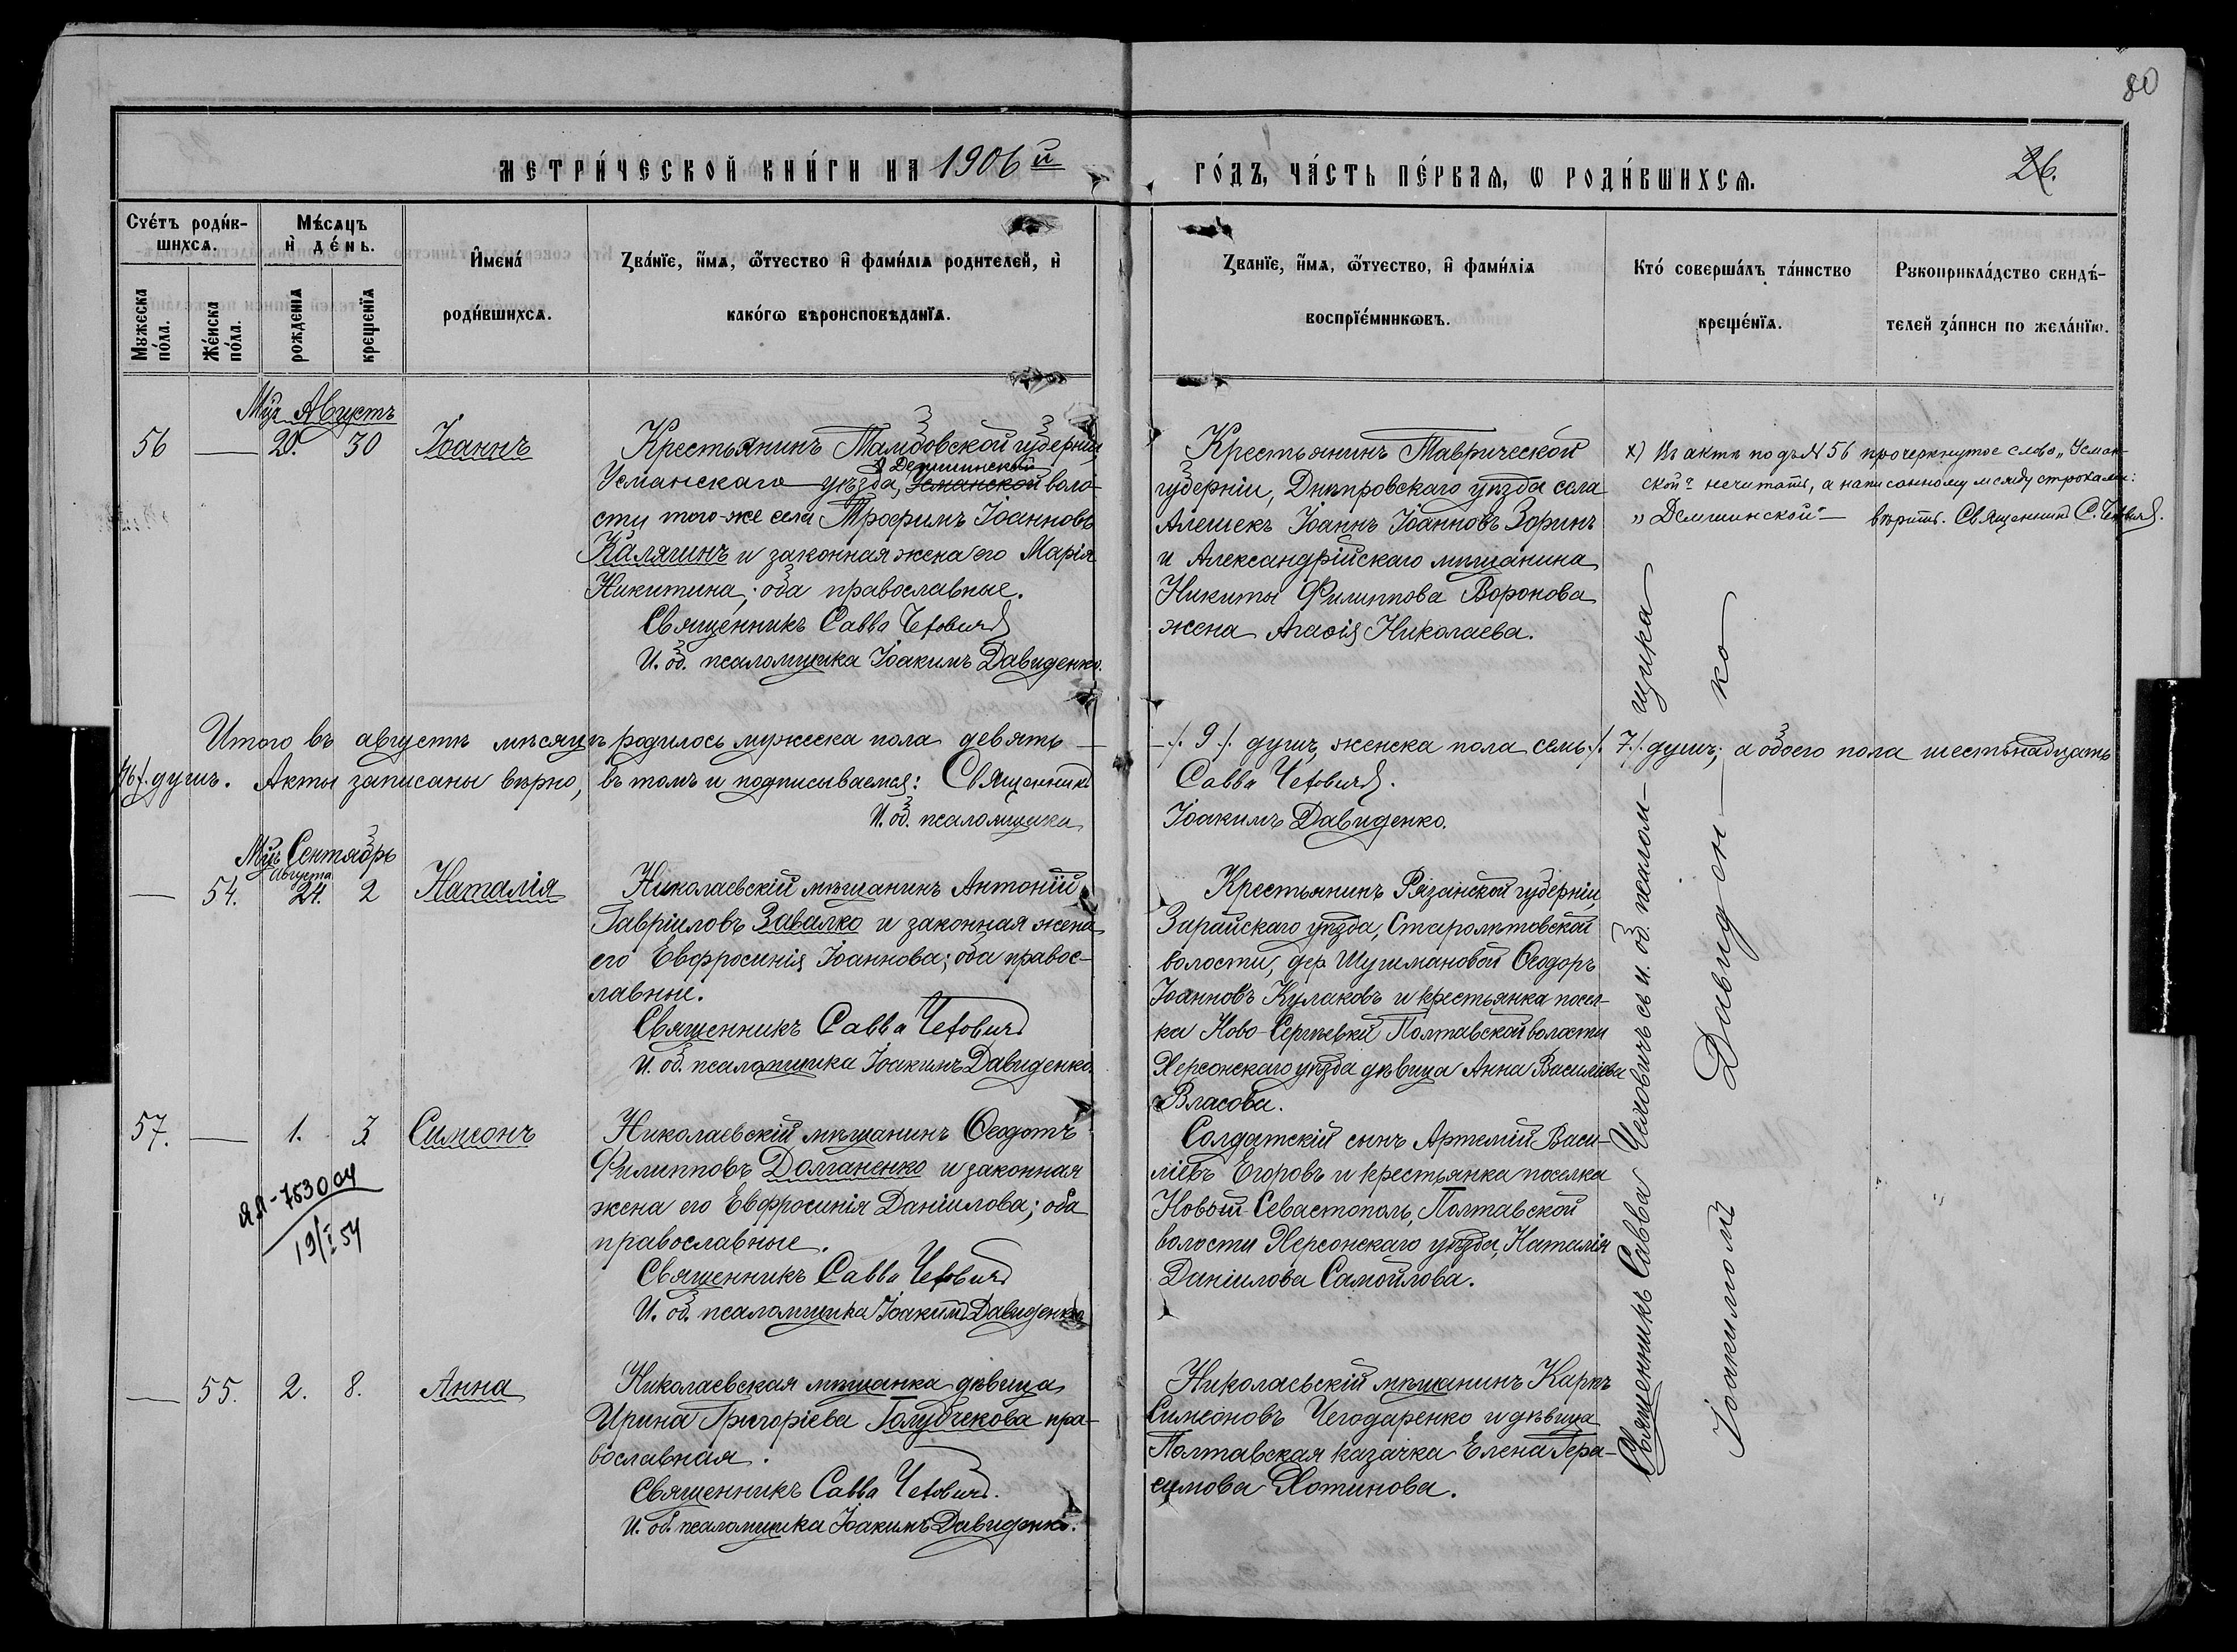 80
МЕТРИ́ЧЕСКОЙ КНИ́ГИ НА 1906й
ГО́ДЪ, ЧА́СТЬ ПЕ́РВАѦ, Ѡ РОДИ́ВШИХСѦ.
26.
Счетъ роди́в-
шихсѧ.
Мѣсѧцъ
и де́нь.
Имена́
роди́вшихсѧ.
Зва́нїе, и҆́мѧ, ѻ҆́тчество и҆ фами́лїѧ родителей, и҆
како́гѡ вѣроисповѣданїѧ.
Званїе, и҆́мѧ, ѻ҆́тчество, и҆ фами́лїѧ
воспрїе́мникѡвъ.
Кто́ соверша́лъ та́инство
креще́нїѧ.
Рꙋкоприкла́дство свидѣ́-
телей за́писи по жела́нїю.
Мꙋжеска
по́ла.
Же́нска
по́ла.
рожденїѧ
крещенїѧ
Мцъ Августъ
56 — 20. 30 Іоаннъ
Крестьянинъ Тамбовской губерніи,
Демшинской
Усманскаго уѣзда, Усманской воло-
сти того-же села Трофимъ Іоанновъ
Калягинъ и законная жена его Марія
Никитина; оба православные.
Священникъ Савва Чехович
И. об. псаломщика Іоакимъ Давиденко.
Крестьянинъ Таврической
губерніи, Днѣпровскаго уѣзда села
Алешекъ Іоаннъ Іоанновъ Зоринъ
и Александрійскаго мѣщанина
Никиты Филиппова Воронова
жена Агаѳія Николаева.
х) Въ актѣ подъ № 56 прочеркнутое слово „Усман-
ской“ нечитать, а написанному между строками:
„Демшинской“ — вѣрить. Священникъ С. Чехович.
Итого въ августѣ мѣсяцѣ родилось мужеска пола девять —
— /. 9 /. душъ, женска пола семь /. 7 /. душъ; а обоего пола шестьнадцать
/16/. душъ. Акты записаны вѣрно, въ томъ и подписываемся: Священникъ
Савва Чехович.
И. об. псаломщика
Іоакимъ Давиденко.
Мцъ Сентябрь
Августа
— 54. 24. 2 Наталія
Николаевскій мѣщанинъ Антоній
Гавріиловъ Завалко и законная жена
его Евфросинія Іоаннова; оба правос-
лавные.
Священникъ Савва Чехович
И. об. псаломщика Іоакимъ Давиденко.
Крестьянинъ Рязанской губерніи,
Зарайскаго уѣзда, Старолѣтовской
волости, дер. Шушмановой Ѳеодоръ
Іоанновъ Кулаковъ и крестьянка посел-
ка Ново-Сергѣевки Полтавской волости
Херсонскаго уѣзда дѣвица Анна Василіева
Власова.
57. — 1. 3. Симеонъ
Николаевскій мѣщанинъ Ѳеодотъ
Филипповъ Долганенко и законная
жена его Евфросинія Даніилова; оба
православные.
Священникъ Савва Чехович
И. об. псаломщика Іоакимъ Давиденко
Солдатскій сынъ Артемій Васи-
ліевъ Егоровъ и крестьянка поселка
Новый-Севастополь, Полтавской
волости Херсонскаго уѣзда, Наталія
Даніилова Самойлова.
ЯЛ-753004
19/I 54
— 55. 2. 8. Анна
Николаевская мѣщанка дѣвица
Ирина Григоріева Голубчекова пра-
вославная.
Священникъ Савва Чехович.
И. об. псаломщика Іоакимъ Давиденко.
Николаевскій мѣщанинъ Карпъ
Симеоновъ Чегодаренко и дѣвица
Полтавская казачка Елена Гера-
симова Хотинова.
Священникъ Савва Чеховичъ съ и. об. псалом-щика
Іоакимомъ Давиден — ко —